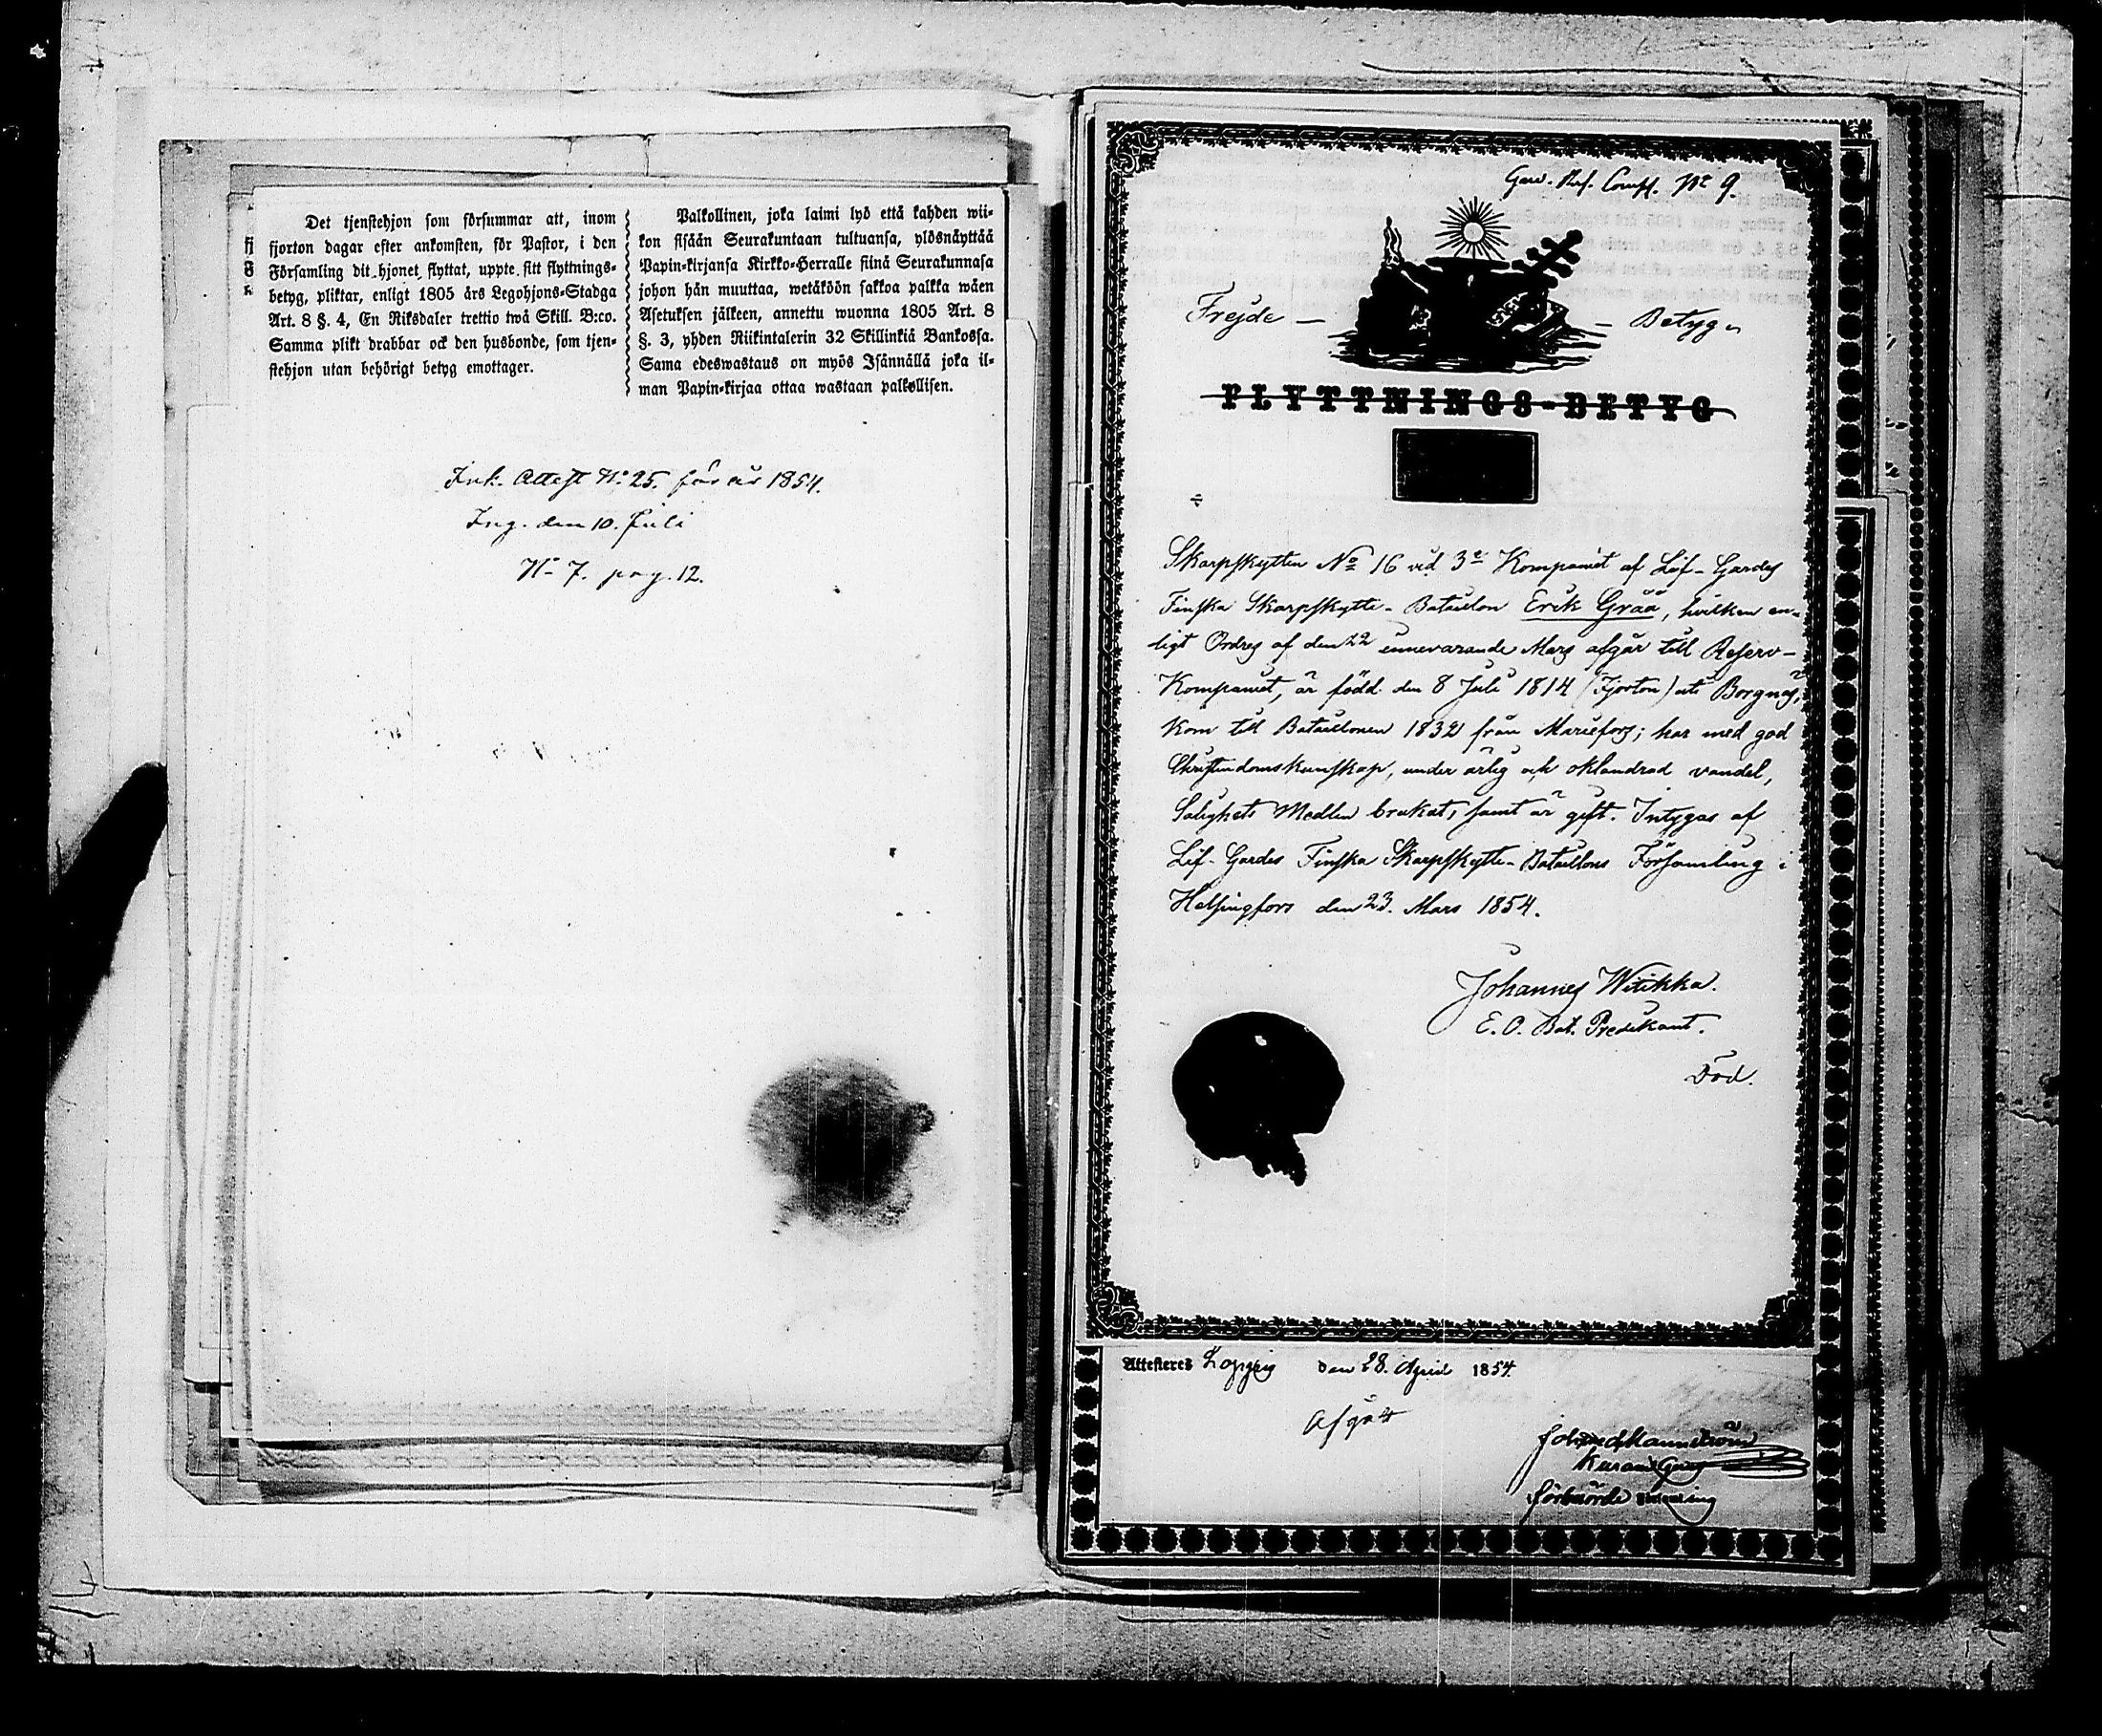 Det tjenstehjon som försummar att, inom
fjorton dagar efter ankomsten, för Pastor, i den
Församling dit hjonet flyttat, uppte sitt flyttnings-
betyg, pliktar, enligt 1805 års Legohjons-Stadga
Art. 8 §. 4, En Riksdaler trettio twå Skill. B:co.
Samma plikt drabbar ock den husbonde, som tjen-
stehjon utan behörigt betyg emottager.
Palkollinen, joka laimi lyö että kahden wii-
kon sisään Seurakuntaan tultuansa, ylösnäyttää
Papin-kirjansa Kirkko-Herralle siinä Seurakunnasa
johon hän muuttaa, wetäköön sakkoa palkka wäen
Asetuksen jälkeen, annettu wuonna 1805 Art. 8
§. 3, yhden Riikintalerin 32 Skillinkiä Bankossa.
Sama edeswastaus on myös Isännällä joka il-
man Papin-kirjaa ottaa wastaan palkollisen.
Ink. Attest No 25. för år 1854.
Ing. den 10. Juli
No 7. pag. 12.
Comp. No 9.
Frejde - Betyg
FLYTTNINGS-BETYG
Skarpskytten No 16 vid 3e Kompaniet af Lif-Gardes
Finska Skarpskytte-Bataillon Erik Grää, hvilken en-
ligt Ordres af den 22 innevarande Mars afgår till Reserv-
Kompaniet, är född den 8 Juli 1814 (Fjorton) uti Borgnäs,
kom till Bataillonen 1832 från Mariefors; har med god
Christendomskunskap, under ärlig och oklandrad vandel,
Salighets Medlen brukat, samt är gift. Intygas af
Lif-Gardes Finska Skarpskytte-Bataillons Församling i
Helsingfors den 23. Mars 1854.
Johannes Witikka.
E. O. Bat. Predikant.
Död.
Attesteras den 28. April 1854.
Afgått